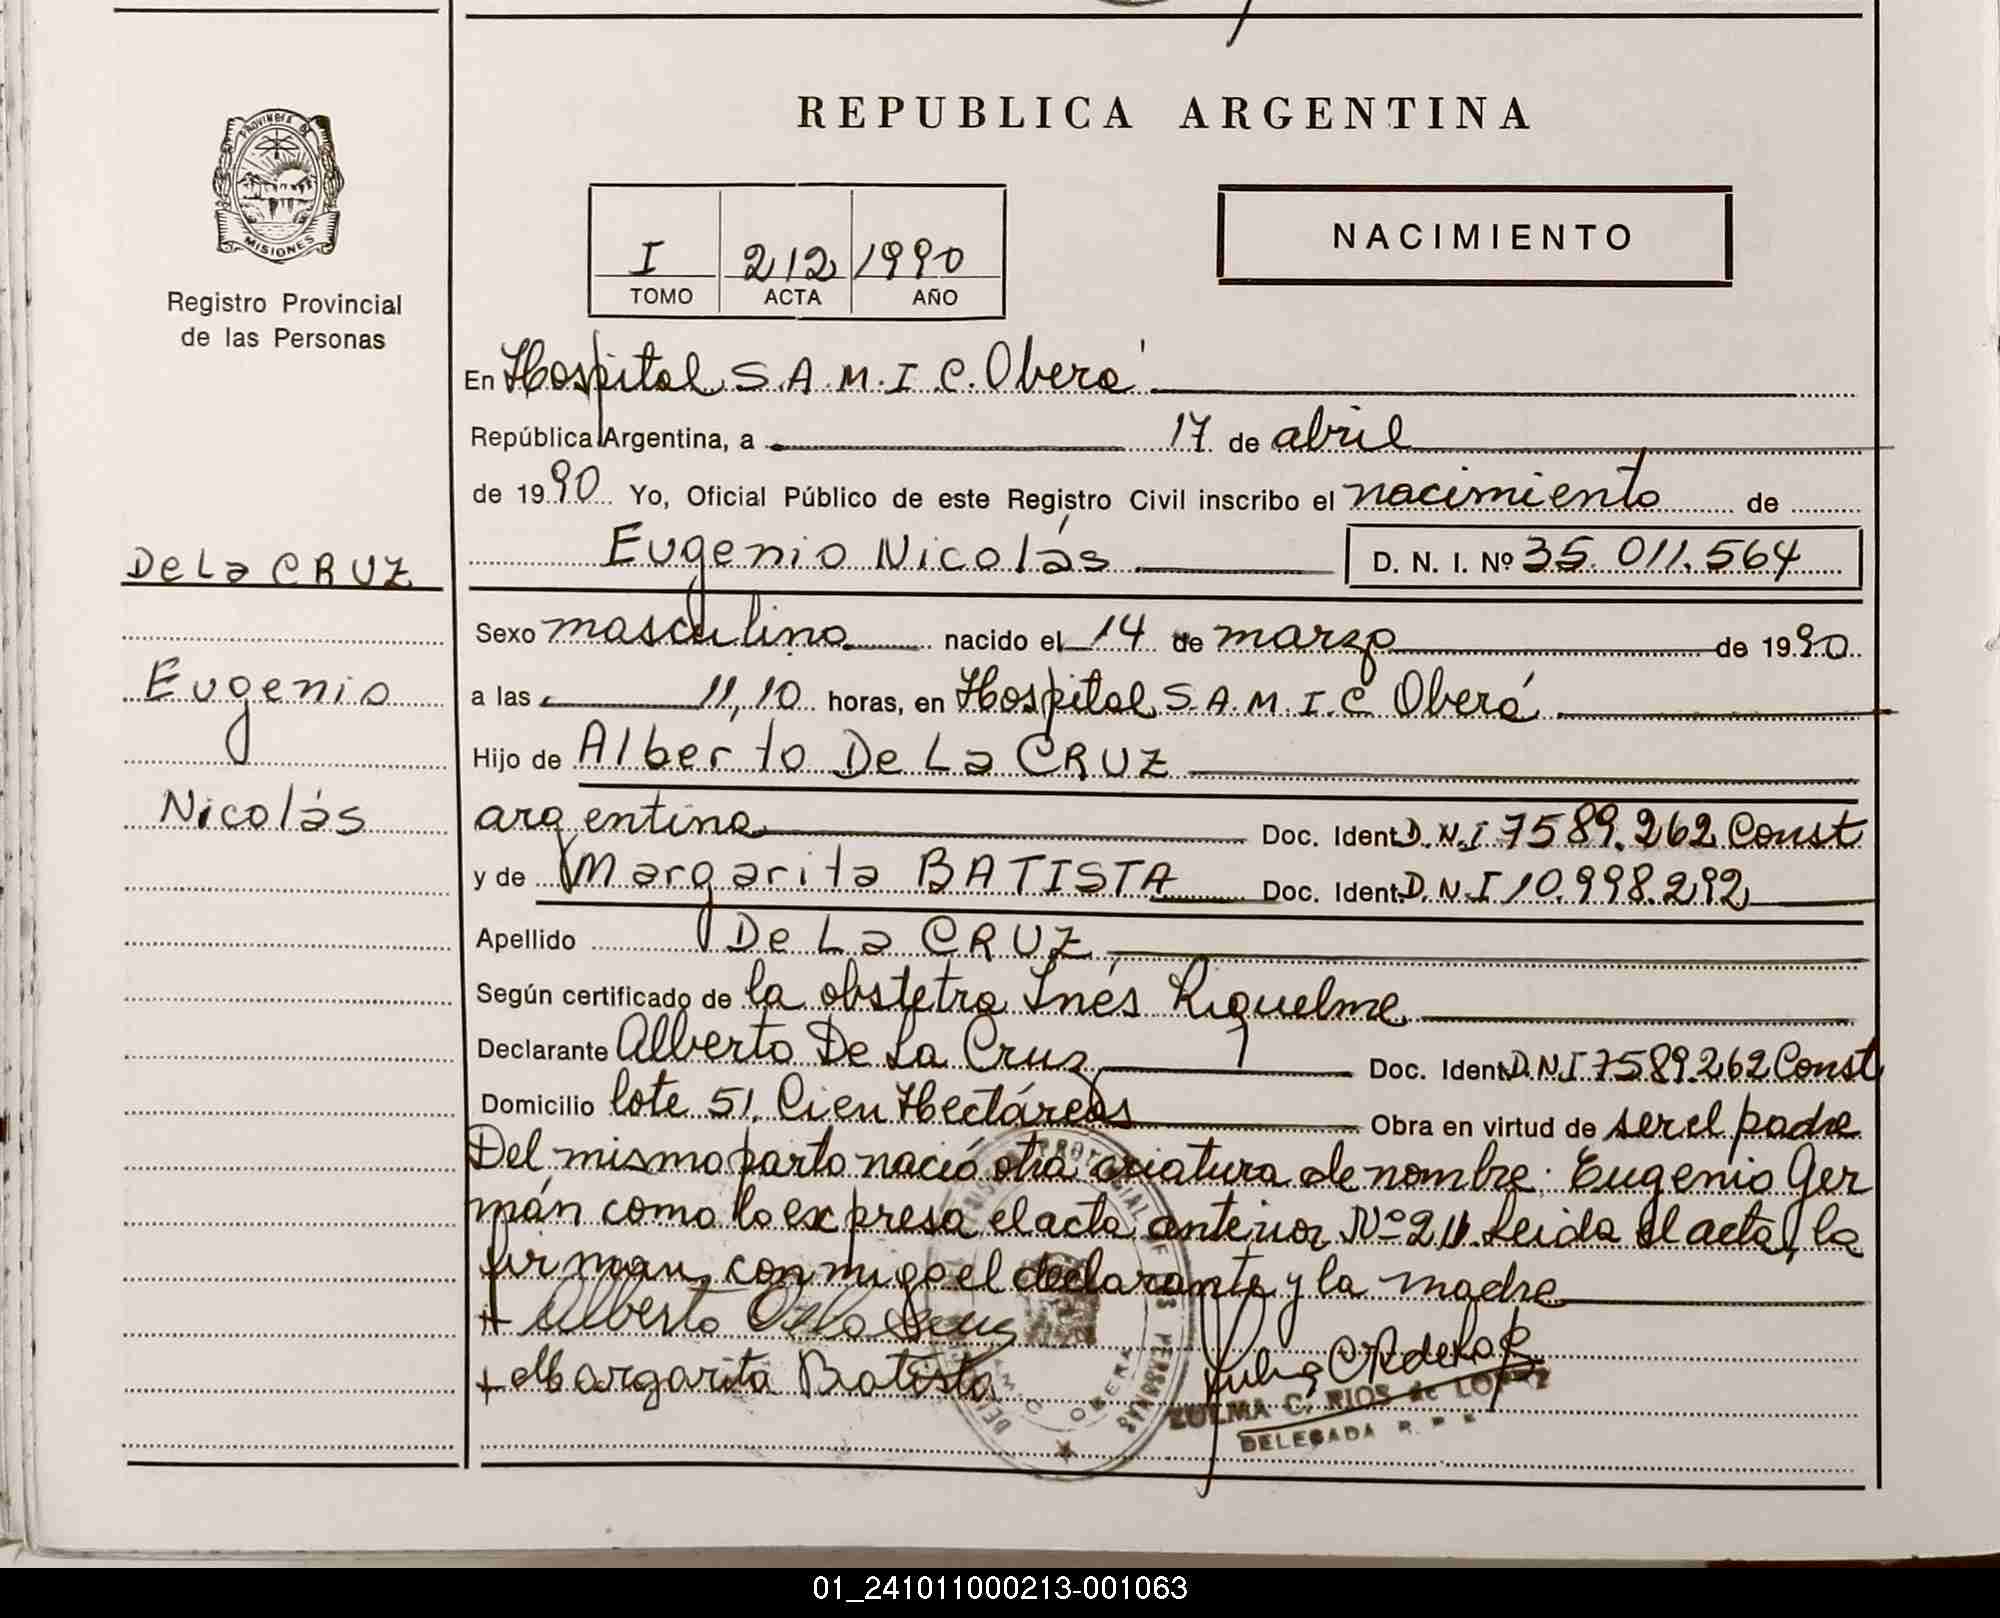 REPUBLICA ARGENTINA
PROVINCIA DE
MISIONES
Registro Provincial
de las Personas
NACIMIENTO
I 212 1990
TOMO ACTA AÑO
En Hospital S.A.M.I.C. Oberá
República Argentina, a 17 de abril
de 1990 Yo, Oficial Público de este Registro Civil inscribo el nacimiento de
Eugenio Nicolás D. N. I. Nº 35.011.564
De La CRUZ
Eugenio
Nicolás
Sexo masculino nacido el 14 de marzo de 1990
a las 11,10 horas, en Hospital S.A.M.I.C Oberá
Hijo de Alberto De La CRUZ
argentina Doc. Ident. D.N.I 7589.262 Const
y de Margarita BATISTA Doc. Ident. D.N.I 10.998.292
Apellido De La CRUZ
Según certificado de la obstetra Inés Riquelme
Declarante Alberto De La Cruz Doc. Ident. D.N.I 7589.262 Const
Domicilio lote 51. Cien Hectáreas Obra en virtud de ser el padre
Del mismo parto nació otra criatura de nombre: Eugenio Ger
mán como lo expresa el acta anterior Nº 211. Leida el acta, la
firman, conmigo el declarante y la madre
+ Alberto De la Cruz
+ Margarita Batista
ZULMA C. RIOS de LOPEZ
DELEGADA R. P. P.
OBERA
01_241011000213-001063